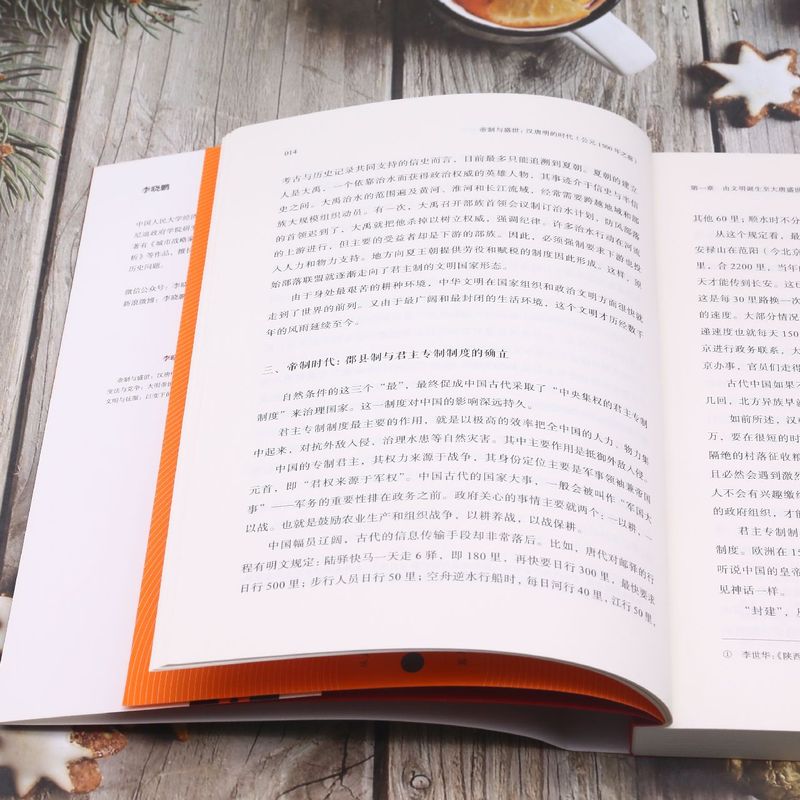 李晓鹏
中国人民大学经济
尼迪政府学院研究
著有《城市战略家
析》等作品,擅长
历史问题。
微信公众号:李晓
新浪微博:李晓鹏
李晓
帝制与盛世:汉唐
变法与党争:大明帝
文明与征服:以变下的
014
帝制与盛世:汉唐明的时代(公元1500年之前)
考古与历史记录共同支持的信史而言,目前最多只能追溯到夏朝。夏朝的建立
人是大禹,一个依靠治水而获得政治权威的英雄人物,其事迹介于信史与半信
史之间。大禹治水的范围遍及黄河、淮河和长江流域,经常需要跨越地域和部
族大规模组织动员。有一次,大禹召开部族首领会议制订治水计划,防风部落
的首领迟到了,大禹就把他杀掉以树立权威,强调纪律。许多治水行动在河流
的上游进行,但主要的受益者却是下游的部族。因此,必须强制要求下游也投
入人力和物力支持。地方向夏王朝提供劳役和赋税的制度因此形成。这样,原
始部落联盟就逐渐走向了君主制的文明国家形态。
由于身处最艰苦的耕种环境,中华文明在国家组织和政治文明方面很快就
走到了世界的前列。又由于最广阔和最封闭的生活环境,这个文明才历经数千
年的风雨延续至今。
三、帝制时代:郡县制与君主专制制度的确立
自然条件的这三个“最”,最终促成中国古代采取了“中央集权的君主专制
制度”来治理国家。这一制度对中国的影响深远持久。
君主专制制度最主要的作用,就是以极高的效率把全中国的人力、物力集
中起来,对抗外敌入侵、治理水患等自然灾害。其中主要作用是抵御外敌入侵。
中国的专制君主,其权力来源于战争,其身份定位主要是军事领袖兼帝国
元首,即“君权来源于军权”。中国古代的国家大事,一般会被叫作“军国大
事”——军务的重要性排在政务之前。政府关心的事情主要就两个:一以耕,一
以战。也就是鼓励农业生产和组织战争,以耕养战,以战保耕。
中国幅员辽阔,古代的信息传输手段却非常落后。比如,唐代对邮驿的行
程有明文规定:陆驿快马一天走6驿,即180里,再快要日行300里,最快要求
日行500里;步行人员日行50里;空舟逆水行船时,每日河行40里,江行50里,
第一章 由文明诞生至大唐盛世
其他60里;顺水时不分
从这个规定看,最
安禄山在范阳(今北京
里,合2200里,当年
天才能传到长安。这已
这是每30里路换一次
的速度。大部分情况
递速度也就每天150
京进行政务联系,大
京办事,官员们走得
古代中国如果不
几回,北方异族早就
如前所述,汉
万,要在很短的时
隔绝的村落征收粮
且必然会遇到激烈
人不会有兴趣缴纳
的政府组织,才能
君主专制制
制度。欧洲在15
听说中国的皇帝
见神话一样。
“封建”,
① 李世华:《陕西